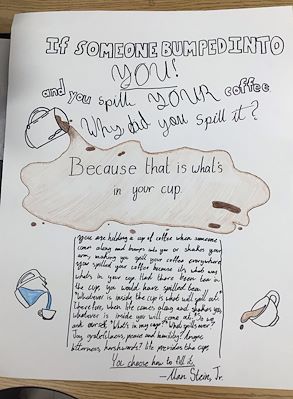 If SOMEONE BUMPED INTO
YOU!
and you spill YOUR coffee
Why did you spill it?
Because that is what's
in your cup.
You are holding a cup of coffee when someone
comes along and bumps into you or shakes your
arm, making you spill your coffee everywhere.
You spilled your coffee because it's what was
in your cup. Had there been tea in
the cup, you would have spilled tea.
"Whatever is inside the cup is what will spill out."
Therefore, when life comes along and shakes you,
whatever is inside you will come out. So we
ask ourself "What's in my cup?" What spills over?
Joy, gratefulness, peace and humility? Anger,
bitterness, harsh words? Life provides the cup,
You choose how to fill it.
—Alan Stein, Jr.